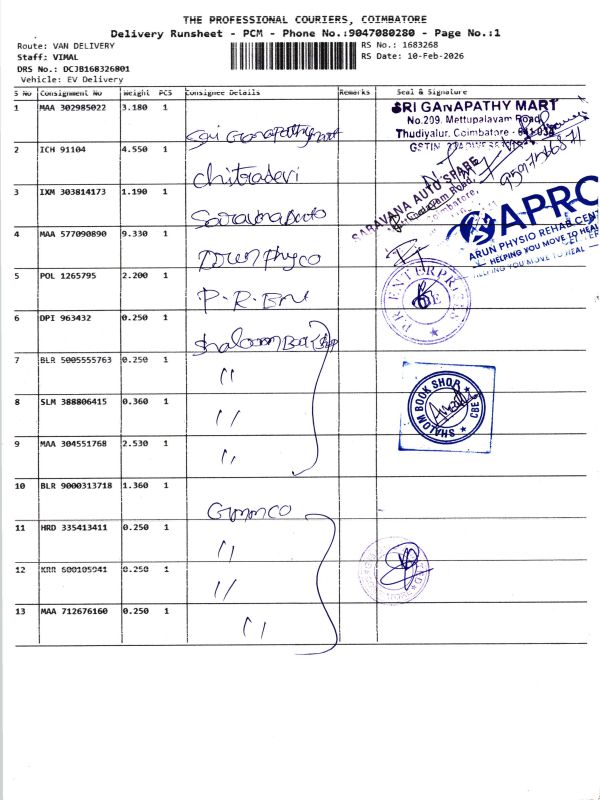 THE PROFESSIONAL COURIERS, COIMBATORE
Delivery Runsheet - PCM - Phone No.:9047080280 - Page No.:1
Route: VAN DELIVERY
Staff: VIMAL
DRS No.: DCJB168326801
Vehicle: EV Delivery
RS No.: 1683268
RS Date: 10-Feb-2026
S No Consignment No Weight PCS Consignee Details Remarks Seal & Signature
1 MAA 302985022 3.180 1
SRI GANAPATHY MART
No.209, Mettupalayam Road,
Thudiyalur, Coimbatore - 641 034
GSTIN
2 ICH 91104 4.550 1 Chitradevi
3 IXM 303814173 1.190 1
SARAVANA AUTO SPARE
Coimbatore,
4 MAA 577090890 9.330 1
APRC
ARUN PHYSIO REHAB CENT
HELPING YOU MOVE TO HEAL
HELPING YOU MOVE TO HEAL
5 POL 1265795 2.200 1
P.R ENTERPRISES
CBE
6 DPI 963432 0.250 1
7 BLR 5005555763 0.250 1 "
8 SLM 388806415 0.360 1 "
SHALOM BOOK SHOP
CBE
9 MAA 304551768 2.530 1 "
10 BLR 9000313718 1.360 1
11 HRD 335413411 0.250 1 "
12 KRR 600105941 0.250 1 "
13 MAA 712676160 0.250 1 "